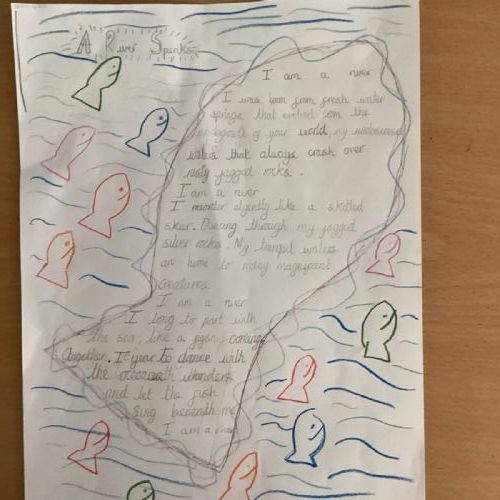 A River Speaks
I am a river
I was born from fresh water
springs that evolved from the
of your world, my
waters that always crash over
rusty jagged rocks.
I am a river
I meander elgently like a skilled
skier. Dancing through my jagged
silver rocks. My tranquil waters
are home to many magnificent
Creatures
I am a river
I long to part with
the sea, like a jigsaw coming
together. I year to dance with
the wonders
and let the fish
Sing beneath me
I am a river